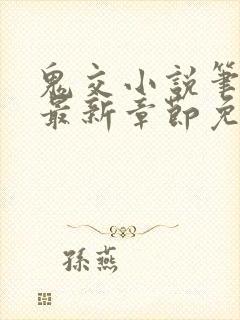 鬼交小說筆
最新章節免
孫燕